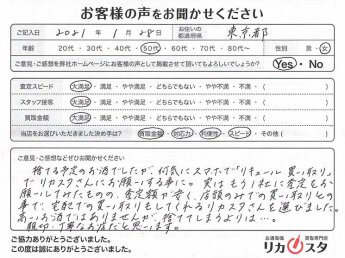 お客様の声をお聞かせください
ご記入日 2021年 1月 28日 お住いの都道府県 東京都
年齢 20代・30代・40代・50代・60代・70代・80代〜 性別 男・女
ご意見・ご感想を弊社ホームページにお客様の声として掲載させて頂いてもよろしいでしょうか? Yes・No
査定スピード 大満足・満足・やや満足・どちらでもない・やや不満・不満・( )
スタッフ接客 大満足・満足・やや満足・どちらでもない・やや不満・不満・( )
買取金額 大満足・満足・やや満足・どちらでもない・やや不満・不満・( )
当店をお選びいただきました決め手は? 買取金額・対応力・利便性・スピード・その他( )
ご意見・ご感想などぜひお聞かせください
捨てる予定のお酒でしたが、何気にスマホで「リキュール 買い取り」
でリカスタさんにお願いする事に。実はもう1社に査定をお
願いしてみたものの、査定額が安く、店頭のみでの買い取りとの
事で、宅配での買い取りもしてくれるリカスタさんを選びました。
高いお酒ではありませんが、捨ててしまうよりは…。
親切、丁寧なお店だと思います。
ご協力ありがとうございました。
この度は誠にありがとうございました。
お酒高価買取専門店
リカスタ